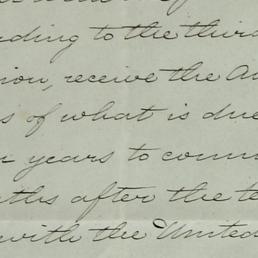 ding to the third
ion, receive the A
s of what is due
r years to comm
ths after the te
with the United